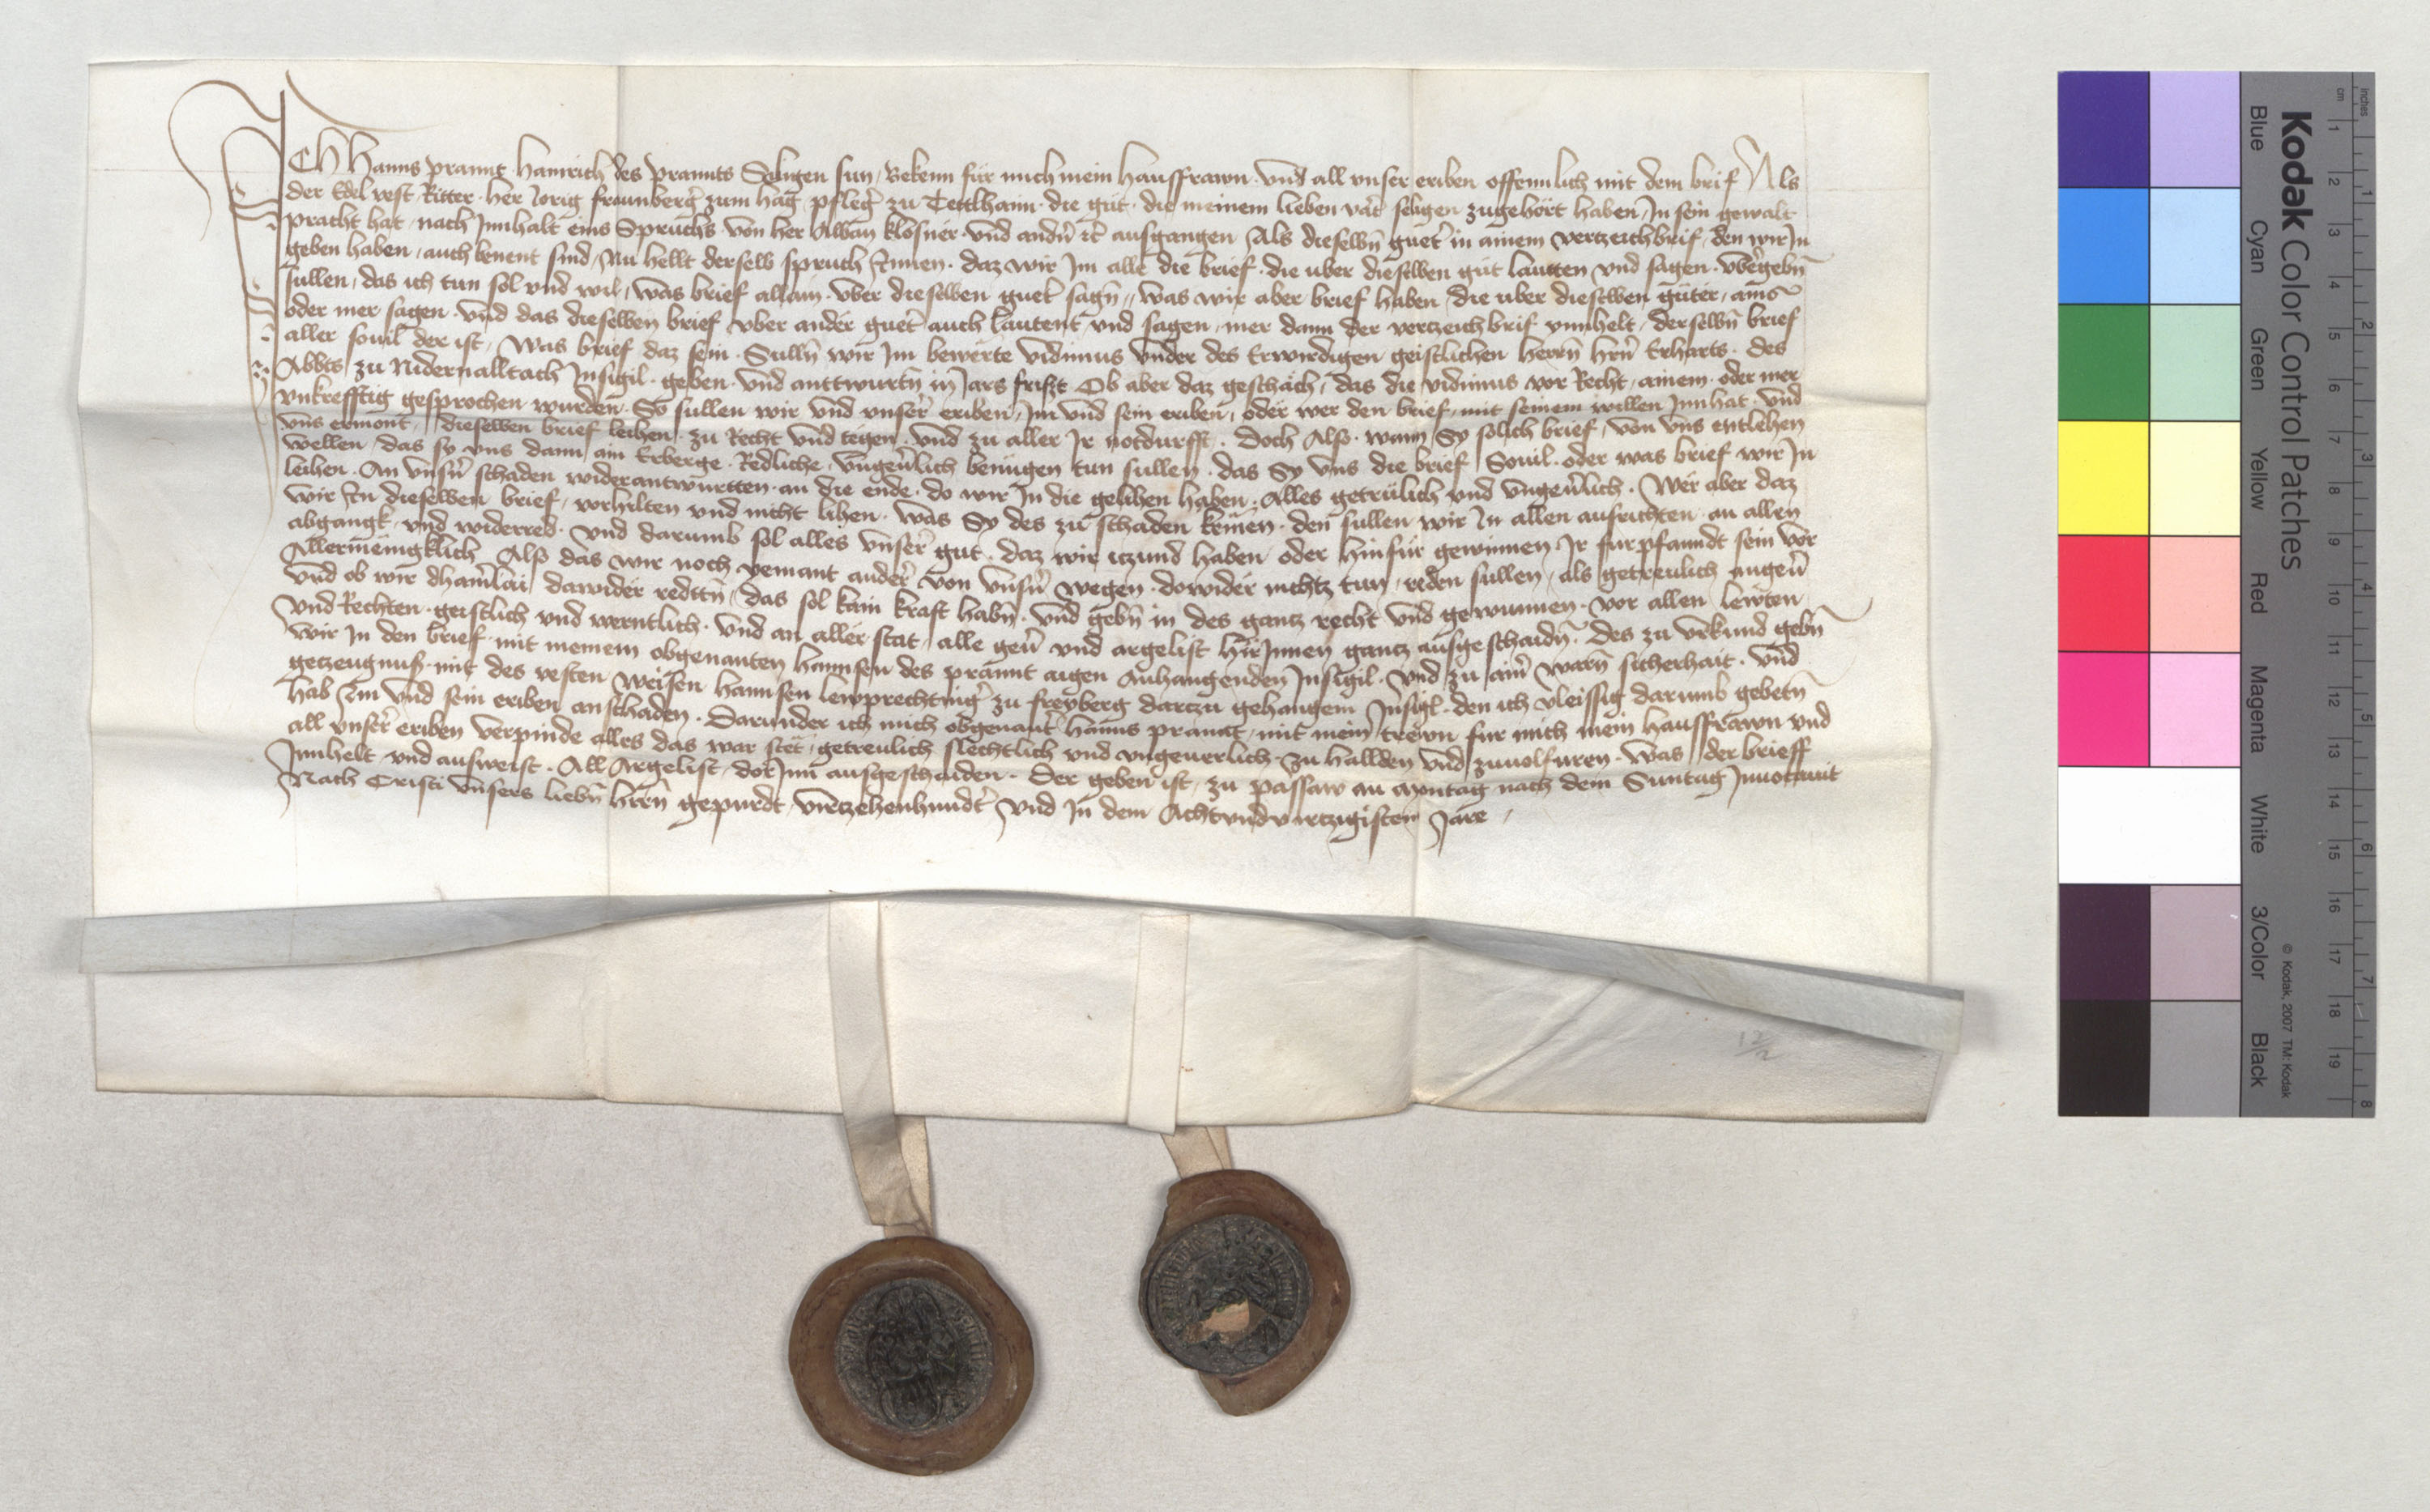 ICH Hanns prannt Hainrich des prannts Seligen sun, Bekenn für mich mein Haussfrawn vnd all vnser eriben offennlich mit dem brif Als
der Edel vest Ritter her Jorig fraunberg̉ zum Hag pfleg̉ zu Tettlhaim die güt die meinem lieben vat̉ seligen zugehört haben, In sein gewalt
pracht hat nach Innhalt eins Spruchs von her Alban klosner vnd andn̉ ec̉ ausgangen Als dieselbn̄ guet̉ in ainem vertzeichbrif, den wir In
geben haben, auch benent sind, Nu hellt derselb spruch Innen daz wir Im alle die brief die uber dieselben güt lautten vnd sagen vberḡebn̄
sullen, das ich tun sol vnd wil, was brief allain vber dieselben guet̉ sagn̄, was wir aber brief haben die uber dieselben güter, ains
oder mer sagen vnd das dieselben brief vber ander guet̉ auch lautent vnd sagen, mer dann der vertzeichbrif ynnhelt, derselbn̄ brief
aller souil der ist, Was brief daz sein Sulln̄ wir Im bewerte vidimus vnder des Erwirdigen geistlichen herrn̄ hrn̄ Erharts des
Abbts zu Nidernalltach Insigil geben vnd anttwurtn̄ in Jars friszt Ob aber daz geschäch, das die vidimus vor Recht, ainem oder mer
vnkrefftig gesprochen wurden So sullen wir vnd vnser̉ eriben, Im vnd sein eriben, oder wer den brief mit seinem willen Innhat vnd
vns ermont, dieselben brief leihen zu Recht vnd tegen vnd zu aller Ir notdurfft. Doch Also wann Sy solich brief, von vns entlehen
wellen, das sy vns dann ain Erberge Redliche vngeu̇lich benügen tun sullen das Sy vns die brief Souil oder was brief wir In
leihen An vnsn̉ schaden widerantwurtten an die ende do wir In die gelihen haben, Alles getrülich vnd vngeu̇lich. Wer aber daz
wir In dieselben brief, vorhilten vnd nicht lihen was Sy des zu schaden kemen den sullen wir In allen aufrichten an allen
abgangk vnd widerred vnd darumb sol alles vnser̉ gut daz wir itzund haben oder hinfür gewinnen Ir furpfanndt sein vor
Allermenigklich Also das wir noch yemant ander̉ von vnsn̉ wegen dowider nichtz tun, reden sullen, als getreulich angeu̇
vnd ob wir dhainlai dawider redttn̄, das sol kain kraft habn̄ vnd gebn̄ in des gantz recht vnd gewunnen vor allen lewten
vnd Rechten geistlich vnd werntlich vnd an aller stat, alle geu̇ vnd argelist hirInnen gantz ausgeschaidn̄. Des zu vrkund gebn̄
wir In den brief mit meinem obgenanten Hannsen des prannt aigen Anhangenden Insigil vnd zu ain̉ warn̄ sicherhait vnd
getzeugnuß mit des vesten weisen Hannsen lewprechting̉ zu freyberg dartzu gehangem Insigl den ich vleissig darumb gebetn̄
hab Im vnd sein eriben anschaden. Darunder ich mich obgenant̉ Hanns prannt, mit mein̄ trewn für mich mein Haussfrawn vnd
all vnser̉ eriben verpinde alles das war stet, getreulich slechtlich vnd vngeuerlich zu hallden vnd zuuolfuren was der brieff
Innhelt vnd ausweist. All Argelist dorInn ausgeschaiden. Der geben ist, zu passaw an Montag nach dem Suntag Inuocauit
Nach Cristi vnsers liebn̄ hrrn̄ gepurdt viertzehenhundt̉ vnd In dem Achtvndviertzigisten Jare
12/2
Kodak Color Control Patches
Blue Cyan Green Yellow Red Magenta White 3/Color Black
© Kodak, 2007 TM: Kodak
cm 1 2 3 4 5 6 7 8 9 10 11 12 13 14 15 16 17 18 19
inches 1 2 3 4 5 6 7 8